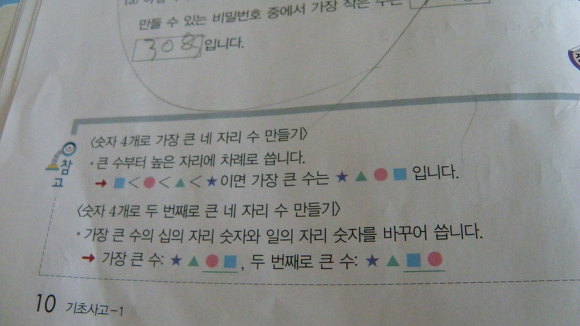 만들 수 있는 비밀번호 중에서 가장 작은 수는
308입니다.
참고
<숫자 4개로 가장 큰 네 자리 수 만들기>
• 큰 수부터 높은 자리에 차례로 씁니다.
➞ ■<●<▲<★이면 가장 큰 수는 ★▲●■입니다.
<숫자 4개로 두 번째로 큰 네 자리 수 만들기>
• 가장 큰 수의 십의 자리 숫자와 일의 자리 숫자를 바꾸어 씁니다.
➞ 가장 큰 수: ★▲●■, 두 번째로 큰 수: ★▲■●
10 기초사고-1